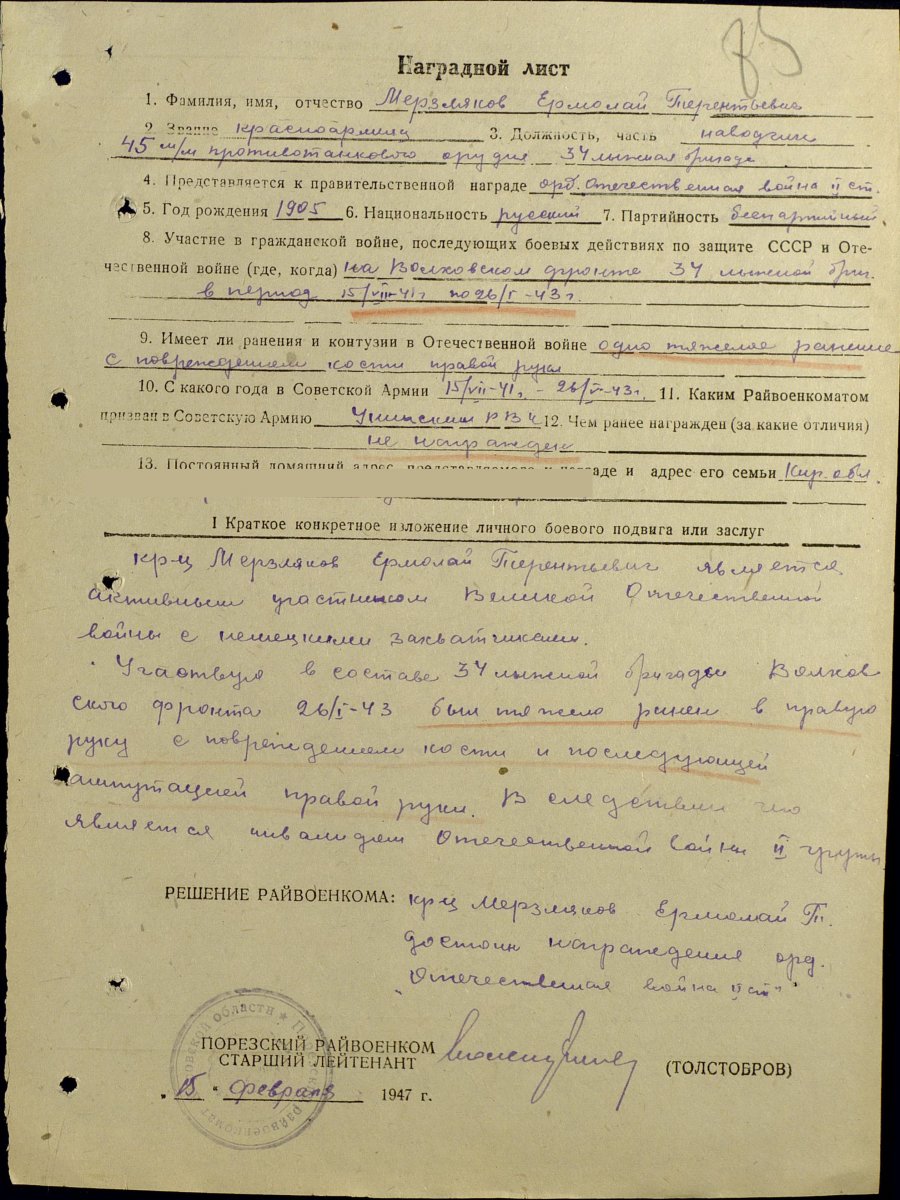 85
Наградной лист
1. Фамилия, имя, отчество Мерзляков Ермолай Терентьевич
2. Звание красноармеец 3. Должность, часть наводчик
45 м/м противотанкового орудия 34 лыжная бригада
4. Представляется к правительственной награде орд. Отечественная война II ст.
5. Год рождения 1905 6. Национальность русский 7. Партийность беспартийный
8. Участие в гражданской войне, последующих боевых действиях по защите СССР и Оте-
чественной войне (где, когда) на Волховском фронте 34 лыжной бриг.
в период 15/VIII-41г. по 26/I-43г.
9. Имеет ли ранения и контузии в Отечественной войне одно тяжелое ранение
с повреждением кости правой руки
10. С какого года в Советской Армии 15/VII-41г. - 26/V-43г. 11. Каким Райвоенкоматом
призван в Советскую Армию РВК 12. Чем ранее награжден (за какие отличия)
не награжден
13. Постоянный домашний адрес представляемого к награде и адрес его семьи Кир. обл.
I Краткое конкретное изложение личного боевого подвига или заслуг
кр-ц Мерзляков Ермолай Терентьевич является
активным участником Великой Отечественной
войны с немецкими захватчиками.
Участвуя в составе 34 лыжной бригады Волхов
ского фронта 26/I-43 был тяжело ранен в правую
руку с повреждением кости и последующей
ампутацией правой руки. В следствии чего
является инвалидом Отечественной войны II группы
РЕШЕНИЕ РАЙВОЕНКОМА: кр-ц Мерзляков Ермолай Т.
достоин награждения орд.
"Отечественная война II ст"
ПОРЕЗСКИЙ РАЙВОЕНКОМ
СТАРШИЙ ЛЕЙТЕНАНТ (ТОЛСТОБРОВ)
"15" февраля 1947 г.